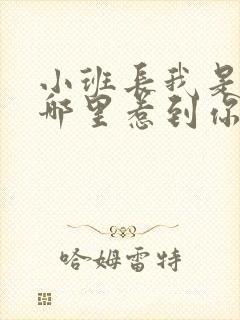 小班长我是
哪里惹到你
哈姆雷特